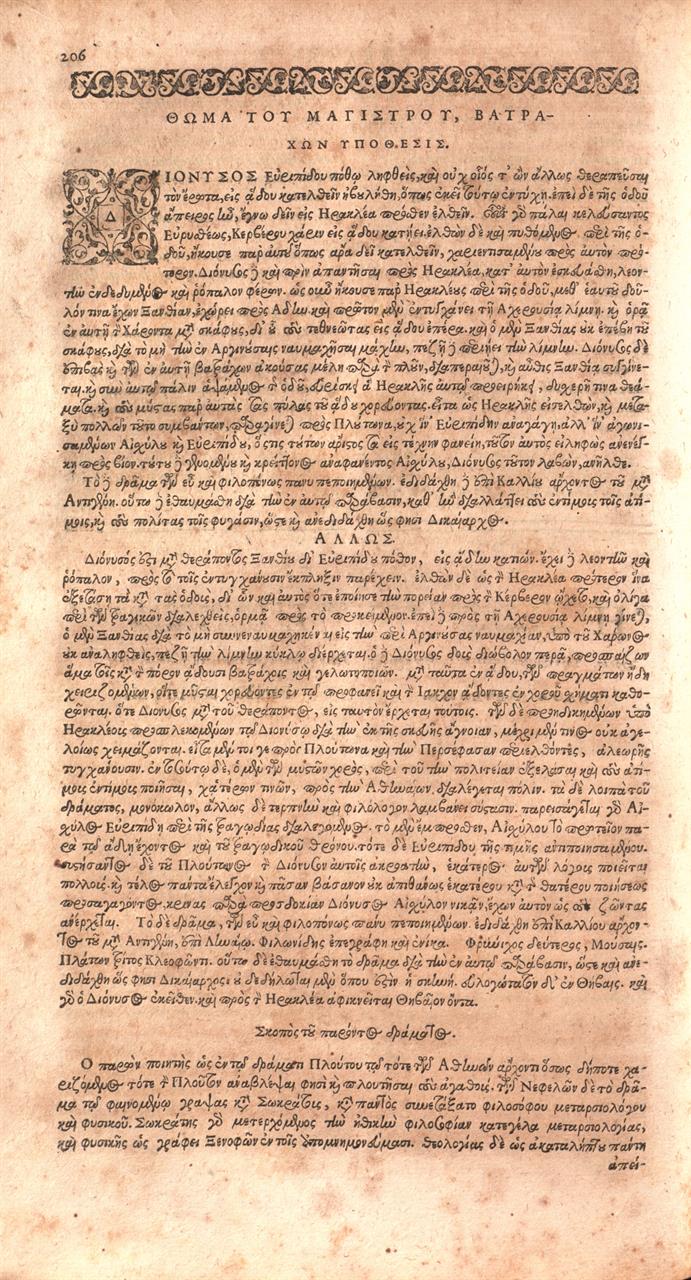 206
ΘΩΜΑ ΤΟΥ ΜΑΓΙΣΤΡΟΥ, ΒΑΤΡΑ-
ΧΩΝ ΥΠΟΘΕΣΙΣ.
ΔΙΟΝΥΣΟΣ Εὐριπίδου πόθῳ ληφθεὶς, καὶ οὐχ οἷός τ' ὢν ἄλλως θεραπεῦσαι
τὸν ἔρωτα, εἰς ᾅδου κατελθεῖν ἠβουλήθη, ὅπως ἐκεῖ τούτῳ ἐντύχῃ. ἐπεὶ δὲ τῆς ὁδοῦ
ἄπειρος ἦν, ἔγνω δεῖν εἰς Ἡρακλέα πρόσθεν ἐλθεῖν. οὗτος γὸ πάλαι κελεύσαντος
Εὐρυσθέως, Κερβέρου χάριν εἰς ᾅδου κατῄει. ἐλθὼν δὲ καὶ πυθόμενος περὶ τῆς ὁ-
δοῦ, ἤκουσε παρ' αὐτοῦ ὅπως ἄρα δεῖ κατελθεῖν, χαριεντισαμένου πρὸς αὐτὸν πρό-
τερον. Διόνυσος ἢ καὶ πρὶν ἀπαντῆσαι πρὸς Ἡρακλέα, κατ' αὐτὸν ἐσκευάσθη, λεον-
τῆν ἐνδεδυμένος καὶ ῥόπαλον φέρων. ὡς οὖν ἤκουσε παρ' Ἡρακλέους περὶ τῆς ὁδοῦ, μεθ' ἑαυτοῦ δοῦ-
λόν τινα ἔχων Ξανθίαν, ἐχώρει πρὸς ᾅδην καὶ πρῶτον μὲν ἐντυγχάνει τῇ Ἀχερουσίᾳ λίμνῃ. καὶ ὁρᾷ
ἐν αὐτῇ τὸν Χάροντα μετὰ σκάφους, δι' οὗ τοὺς τεθνεῶτας εἰς ᾅδου ἐπέρα. καὶ ὁ μὲν Ξανθίας οὐκ ἐπέβη τοῦ
σκάφους, διὰ τὸ μὴ τὴν ἐν Ἀργινούσαις ναυμαχῆσαι μάχην, πεζῇ δὲ περιῄει τὴν λίμνην. Διόνυσος δὲ
ἐπιβὰς καὶ τῶν ἐν αὐτῇ βατράχων ἀκούσας μέλη παρὰ τὸν πλοῦν, διαπεραιοῦται, καὶ αὖθις Ξανθίᾳ συγγίνε-
ται. καὶ σὺν αὐτῷ πάλιν ἁψάμενος τῆς ὁδοῦ, εὑρίσκει ἃ Ἡρακλῆς αὐτῷ προείρηκε, δυσχερῆ τινα θεά-
ματα. καὶ τοὺς μύστας παρ' αὐτὰς τὰς πύλας τοῦ ᾅδου χορεύοντας. εἶτα ὡς Ἡρακλῆς εἰσελθὼν, καὶ μετα-
ξὺ πολλῶν τούτῳ συμβάντων, παραγίνεται πρὸς Πλούτωνα, οὐχ ἵν' Εὐριπίδην ἀναγάγῃ, ἀλλ' ἵν' ἀγωνι-
σαμένων Αἰσχύλου καὶ Εὐριπίδου, ὅστις τούτων ἄριστος τὰ εἰς τέχνην φανείη, τοῦτον αὐτὸς εἰληφὼς ἀνενέγ-
κῃ πρὸς βίον. τούτου δὲ γενομένου καὶ κρείττονος ἀναφανέντος Αἰσχύλου, Διόνυσος τοῦτον λαβὼν, ἀνῆλθε.
Τὸ δὲ δρᾶμα τῶν εὖ καὶ φιλοπόνως πάνυ πεποιημένων. ἐδιδάχθη δὲ ἐπὶ Καλλίου ἄρχοντος τοῦ μετὰ
Ἀντιγένη. οὕτω δὲ ἐθαυμάσθη διὰ τὴν ἐν αὐτῷ παράβασιν, καθ' ἣν διαλλάττει τοὺς ἐντίμους τοῖς ἀτί-
μοις, καὶ τοὺς πολίτας τοῖς φυγάσιν, ὥστε καὶ ἀνεδιδάχθη ὥς φησι Δικαίαρχος.
ΑΛΛΩΣ.
Διόνυσός ἐστι μετὰ θεράποντος Ξανθίου δι' Εὐριπίδου πόθον, εἰς ᾅδην κατιών. ἔχει δὲ λεοντῆν καὶ
ῥόπαλον, πρὸς τὸ τοῖς ἐντυγχάνουσιν ἔκπληξιν παρέχειν. ἐλθὼν δὲ ὡς τὸν Ἡρακλέα πρότερον ἵνα
ἐξετάσῃ τὰ κατὰ τὰς ὁδοὺς, δι' ὧν καὶ αὐτὸς ὅτε ἐποίησε τὴν πορείαν πρὸς τὸν Κέρβερον ᾤχετο, καὶ ὀλίγα
περὶ τῶν τραγικῶν διαλεχθεὶς, ὁρμᾷ πρὸς τὸ προκείμενον. ἐπεὶ δὲ πρὸς τῇ Ἀχερουσίᾳ λίμνῃ γίνεται,
ὁ μὲν Ξανθίας διὰ τὸ μὴ συννεναυμαχηκέναι εἰς τὴν περὶ Ἀργινούσας ναυμαχίαν, ὑπὸ τοῦ Χάρωνος
οὐκ ἀναληφθεὶς, πεζῇ τὴν λίμνην κύκλῳ διέρχεται. ὁ δὲ Διόνυσος δοὺς διώβολον περᾷ, προσπαίζων
ἅμα τοῖς κατὰ τὸν πόρον ᾄδουσι βατράχοις καὶ γελωτοποιῶν. μετὰ ταῦτα ἐν ᾅδου, τῶν πραγμάτων ἤδη
χειριζομένων, οἵτε μύσται χορεύοντες ἐν τῷ προφανεῖ καὶ τὸν Ἴακχον ᾄδοντες ἐν χοροῦ σχήματι καθο-
ρῶνται. ὅτε Διόνυσος μετὰ τοῦ θεράποντος, εἰς ταυτὸν ἔρχεται τούτοις. τῶν δὲ προηδικημένων ὑπὸ
Ἡρακλέους προσπλεκομένων τῷ Διονύσῳ διὰ τὴν ἐκ τῆς σκευῆς ἄγνοιαν, μέχρι μέν τινος οὐκ ἀγε-
λοίως χειμάζονται. εἶτα μέν τοι γε πρὸς Πλούτωνα καὶ τὴν Περσέφασαν παρελθόντες, ἀλεωρῆς
τυγχάνουσιν. ἐν τούτῳ δὲ, ὁ μὲν τῶν μυστῶν χορὸς, περὶ τοῦ τὴν πολιτείαν ἐξελᾶσαι καὶ τοὺς ἀτί-
μους ἐντίμους ποιῆσαι, χ' ἁτέρων τινῶν, πρὸς τὴν Ἀθηναίων διαλέγεται πόλιν. τὰ δὲ λοιπὰ τοῦ
δράματος, μονόκωλον, ἄλλως δὲ τερπνὴν καὶ φιλόλογον λαμβάνει σύστασιν. παρεισάγεται γὸ Αἰ-
χύλος Εὐριπίδῃ περὶ τῆς τραγῳδίας διαλεγόμενος. τὸ μὲν ἔμπροσθεν, Αἰσχύλου τὸ πρωτεῖον πα-
ρὰ τῷ ᾅδῃ ἔχοντος καὶ τοῦ τραγῳδικοῦ θρόνου. τότε δὲ Εὐριπίδου τῆς τιμῆς ἀντιποιησαμένου.
συστήσαντος δὲ τοῦ Πλούτωνος τὸν Διόνυσον αὐτοῖς ἀκροατὴν, ἑκάτερος αὐτῶν λόγους ποιεῖται
πολλοὺς. καὶ τέλος πάντα ἔλεγχον καὶ πᾶσαν βάσανον οὐκ ἀπιθάνως ἑκατέρου κατὰ τῆς θατέρου ποιήσεως
προσαγαγόντος, κρίνας παρὰ προσδοκίαν Διόνυσος Αἰσχύλον νικᾶν, ἔχων αὐτὸν ὡς τοὺς ζῶντας
ἀνέρχεται. Τὸ δὲ δρᾶμα, τῶν εὖ καὶ φιλοπόνως πάνυ πεποιημένων. ἐδιδάχθη ἐπὶ Καλλίου ἄρχον-
τος τοῦ μετὰ Ἀντιγένη, ἐπὶ Λήναια. Φιλωνίδης ἐπεγράφη καὶ ἐνίκα. Φρύνιχος δεύτερος, Μούσαις.
Πλάτων τρίτος Κλεοφῶντι. οὕτω δὲ ἐθαυμάσθη τὸ δρᾶμα διὰ τὴν ἐν αὐτῷ παράβασιν, ὥστε καὶ ἀνε-
διδάχθη ὥς φησι Δικαίαρχος. οὐ δεδήλωται μὲν ὅπου ἐστὶν ἡ σκηνή. εὐλογώτατον δ' ἐν Θήβαις. καὶ
γὸ ὁ Διόνυσος ἐκεῖθεν. καὶ πρὸς τὸν Ἡρακλέα ἀφικνεῖται Θηβαῖον ὄντα.
Σκοπὸς τοῦ παρόντος δράματος.
Ὁ παρὼν ποιητὴς ὡς ἐν τῷ δράματι Πλούτου τῷ τότε τῶν Ἀθηνῶν ἄρχοντι ὅστις δήποτε χα-
ριζόμενος τότε τὸν Πλοῦτον ἀναβλέψαι φησὶ καὶ πλουτῆσαι τοὺς ἀγαθούς. τῶν Νεφελῶν δὲ τὸ δρᾶ-
μα τῷ φαινομένῳ γράψας κατὰ Σωκράτους, κατὰ παντὸς συνετάξατο φιλοσόφου μεταρσιολόγου
καὶ φυσικοῦ. Σωκράτης γὸ μετερχόμενος τὴν ἠθικὴν φιλοσοφίαν κατεγέλα μεταρσιολογίας,
καὶ φυσικῆς ὡς γράφει Ξενοφῶν ἐν τοῖς ὑπομνημονεύμασι. θεολογίας δὲ ὡς ἀκαταλήπτου πάντη
ἀπεί-